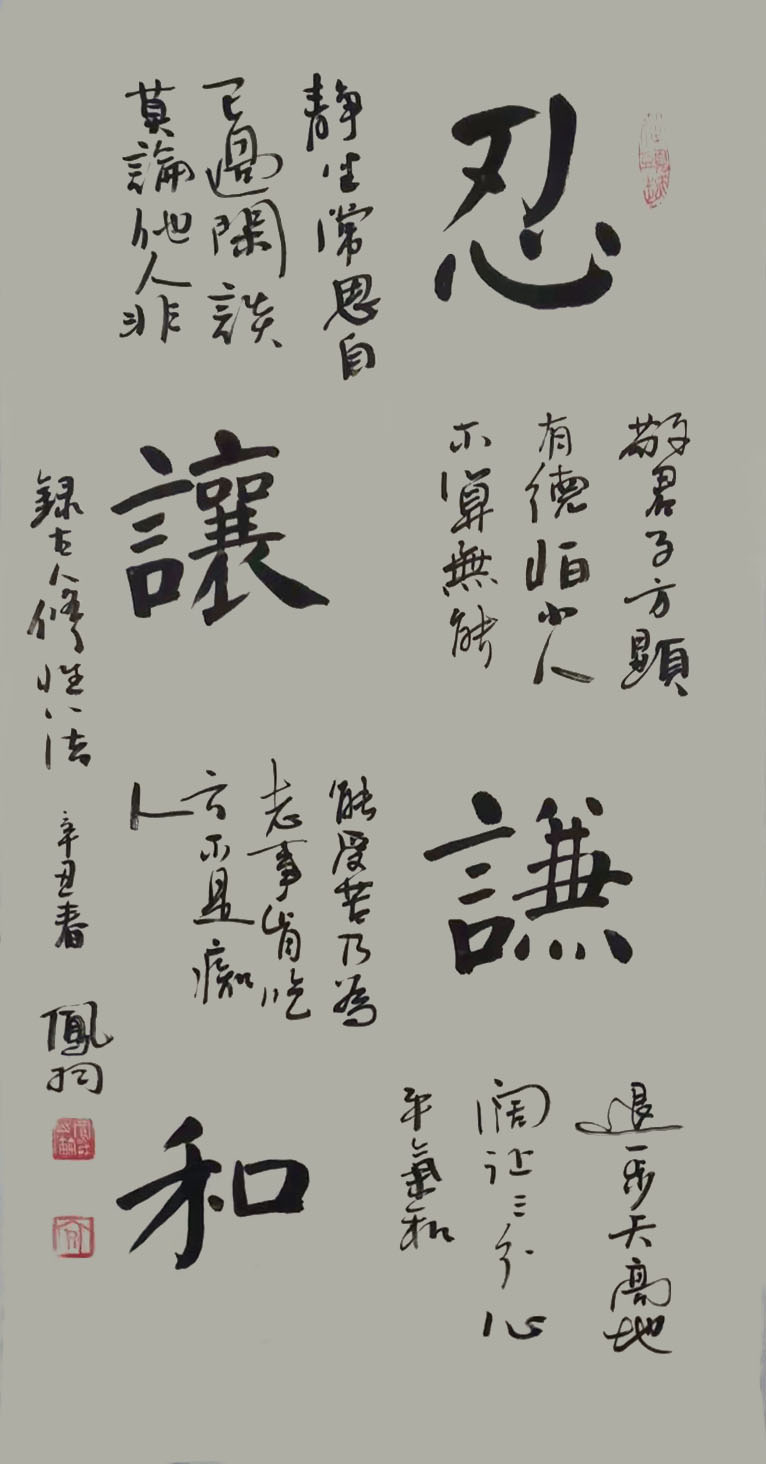 忍
静坐常思自
己過閑談
莫論他人非
敬君子方顯
有德怕小人
不算無能
讓
謙
能受苦乃為
志事肯吃
方不是癡
人
退一步天高地
闊让三分心
平氣和
和
録古人修性八法
辛丑春
鳳